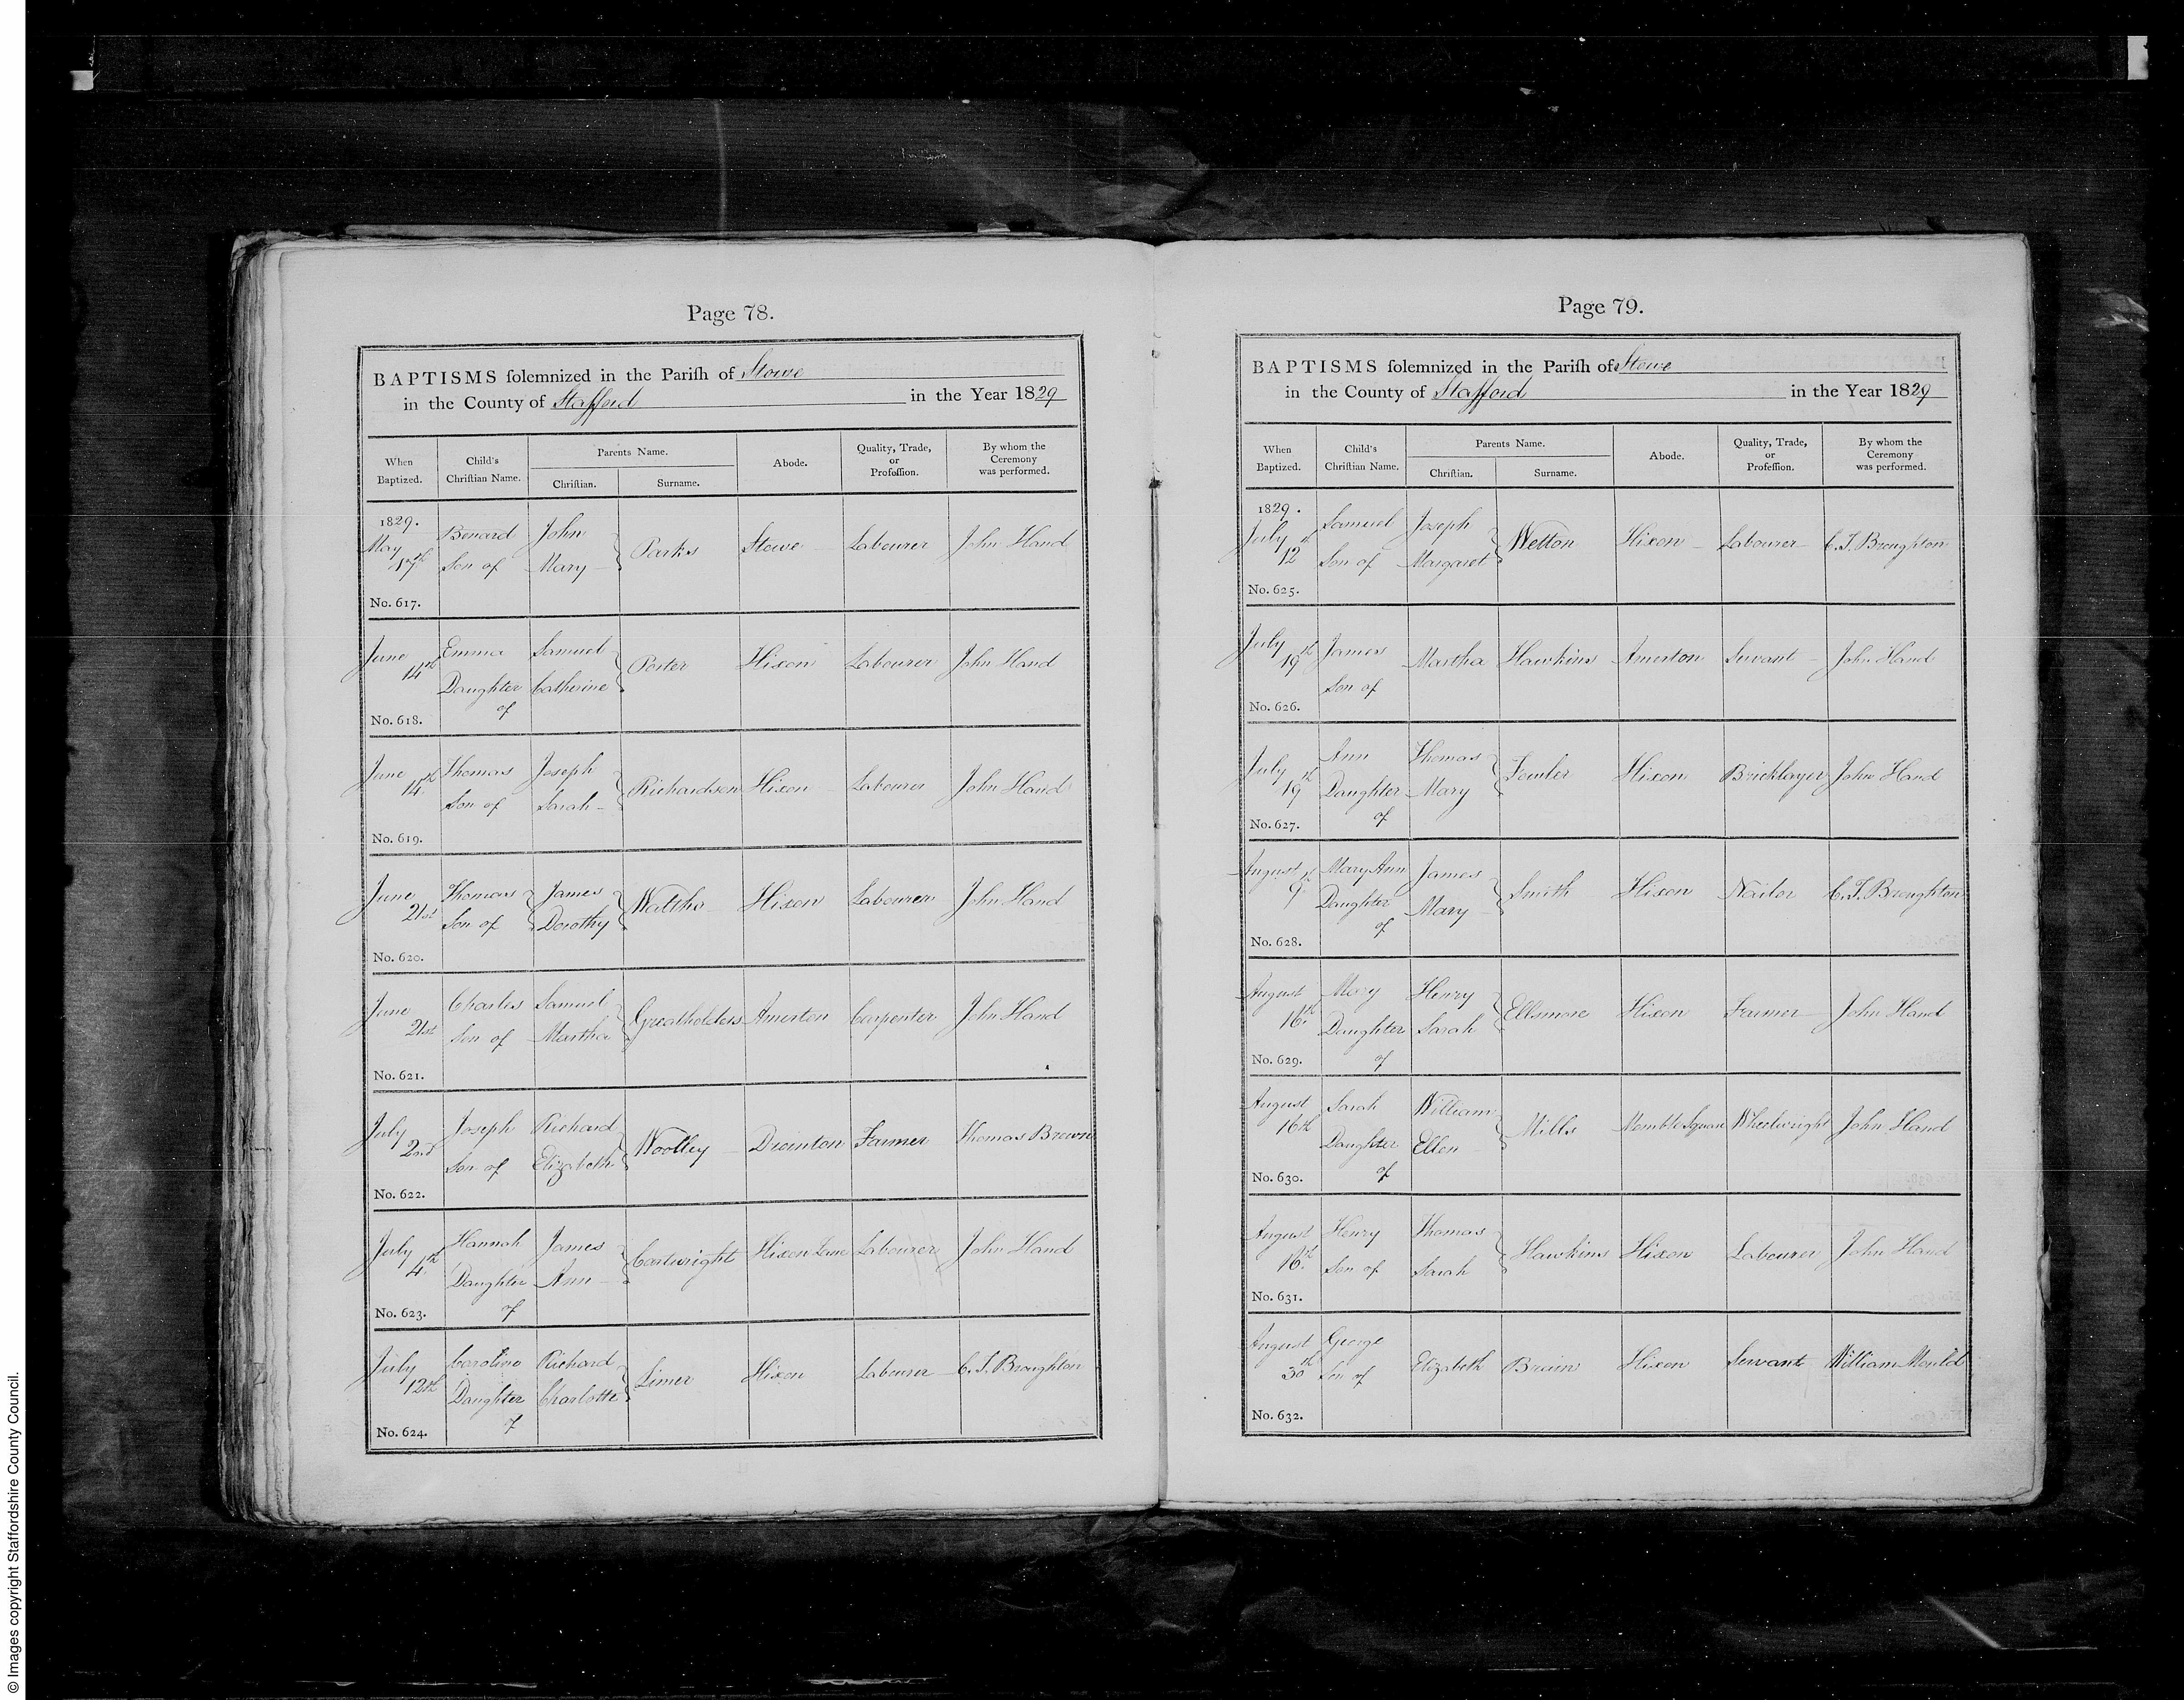 Page 78.
BAPTISMS solemnized in the Parish of Stowe
in the County of Stafford in the Year 1829
When Baptized. Child's Christian Name. Parents Name. Christian. Surname. Abode. Quality, Trade, or Profession. By whom the Ceremony was performed.
1829. May 17th Benard Son of John Mary Parks Stowe Labourer John Hand
No. 617.
June 14th Emma Daughter of Samuel Catherine Porter Hixon Labourer John Hand
No. 618.
June 14th Thomas Son of Joseph Sarah Richardson Hixon Labourer John Hand
No. 619.
June 21st Thomas Son of James Dorothy Waltho Hixon Labourer John Hand
No. 620.
June 21st Charles Son of Samuel Martha Greatholders Amerton Carpenter John Hand
No. 621.
July 2nd Joseph Son of Richard Elizabeth Woolley Drointon Farmer Thomas Brown
No. 622.
July 4th Hannah Daughter of James Ann Cartwright Hixon Lane Labourer John Hand
No. 623.
July 12th Caroline Daughter of Richard Charlotte Limer Hixon Labourer C. T. Broughton
No. 624.
Page 79.
BAPTISMS solemnized in the Parish of Stowe
in the County of Stafford in the Year 1829
When Baptized. Child's Christian Name. Parents Name. Christian. Surname. Abode. Quality, Trade, or Profession. By whom the Ceremony was performed.
1829. July 12th Samuel Son of Joseph Margaret Wetton Hixon Labourer C. T. Broughton
No. 625.
July 19th James Son of Martha Hawkins Amerton Servant John Hand
No. 626.
July 19th Ann Daughter of Thomas Mary Fowler Hixon Bricklayer John Hand
No. 627.
August 9th Mary Ann Daughter of James Mary Smith Hixon Nailor C. T. Broughton
No. 628.
August 16th Mary Daughter of Henry Sarah Ellsmore Hixon Farmer John Hand
No. 629.
August 16th Sarah Daughter of William Ellen Mills Square Wheelwright John Hand
No. 630.
August 16th Henry Son of Thomas Sarah Hawkins Hixon Labourer John Hand
No. 631.
August 30th George Son of Elizabeth Brain Hixon Servant William Mould
No. 632.
© Images copyright Staffordshire County Council.